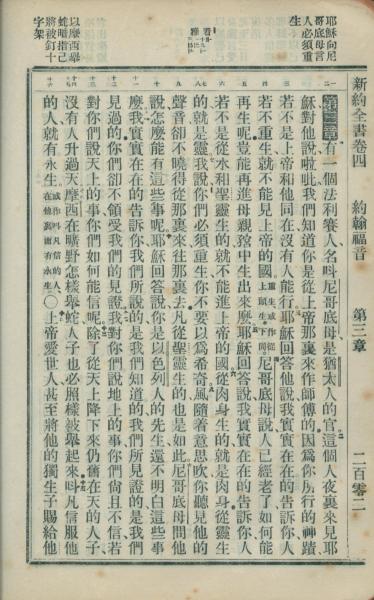 新約全書卷四　約翰福音　第三章　二百零二
耶穌向尼
哥底母言
人必須重
生
以摩西舉
蛇喻指己
將被釘十
字架
第三章有一個法利賽人名呌尼哥底母是猶太人的官這個人夜裏來見耶
穌對他說啦吡我們知道你是從上帝那裏來作師傅的因爲你所行的神蹟
若不是上帝和他同在沒有人能行耶穌回答他說我實實在在的告訴你人
若不重生就不能見上帝的國重生或作從上頭生下同尼哥底母說人已經老了如何能
再生呢豈能再進母親腹中生出來麼耶穌回答說我實實在在的告訴你人
若不是從水和聖靈生的就不能進上帝的國從肉身生的就是肉身從靈生
的就是靈我說你們必須重生你不要以爲希奇風隨着意思吹你聽見他的
聲音卻不曉得從那裏來往那裏去凡從聖靈生的也是如此尼哥底母問他
說怎麼能有這些事呢耶穌回答說你是以色列人的先生還不明白這些事
麼我實實在在的告訴你我們所說的是我們知道的我們所見證的是我們
見過的你們卻不領受我們的見證我對你們說地上的事你們尙且不信若
對你們說天上的事你們如何能信呢除了從天上降下來仍舊在天的人子
沒有人升過天摩西在曠野怎樣舉蛇人子也必照樣被舉起來呌凡信服他
的人就有永生或作呌凡信的人在他裏面有永生○上帝愛世人甚至將他的獨生子賜給他